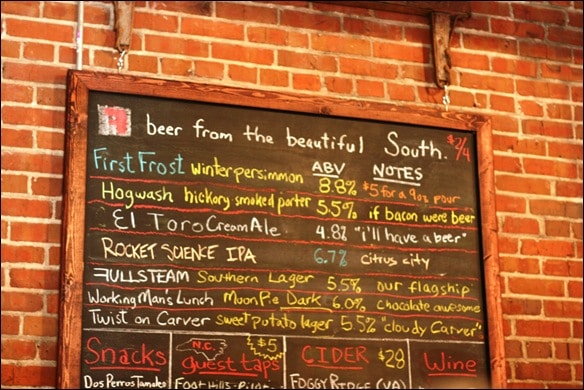 beer from the beautiful South. $2/4
ABV NOTES
First Frost winter persimmon 8.8% $5 for a 9oz pour
Hogwash hickory smoked porter 5.5% if bacon were beer
El Toro Cream Ale 4.8% "i'll have a beer"
ROCKET SCIENCE IPA 6.7% citrus city
FULLSTEAM Southern Lager 5.5% our flagship
Working Man's Lunch Moon Pie Dark 6.0% chocolate awesomes
Twist on Carver sweet potato lager 5.5% "cloudy Carver"
Snacks N.C. guest taps $5 CIDER $28 Wine
Dos Perros Tamales FOGGY RIDGE (VA)